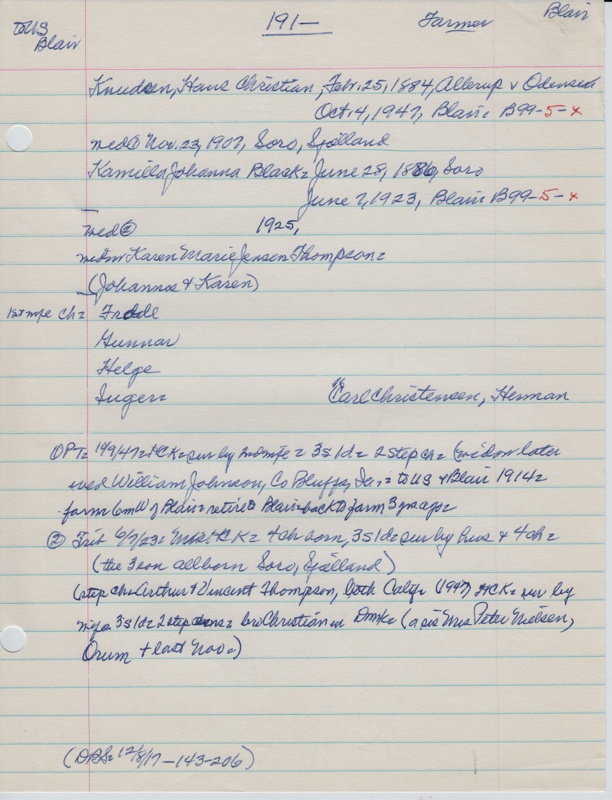 To US 191— Farmer Blair
Blair
Knudsen, Hans Christian, Febr. 25, 1884, Allerup v Odense
Oct. 4, 1947, Blair: B99-5-x
wed ① Nov. 23, 1907, Soro, Sjælland
Kamilla Johanna Black = June 28, 1886, Soro
June 7, 1923, Blair: B99-5-x
wed ② 1925,
Karen Marie Jensen Thompson =
(Johannes & Karen)
1st wife ch = Frode
Gunnar
Helge
Inger = Carl Christensen, Herman
① PT = 10/9/47 = HCK = sur by 2nd wife = 3s 1d = 2 step ch = (widow later
wed William Johnson, Co Bluffs, Ia. = to US & Blair 1914 =
farm 6 m W of Blair = retired Blair = back to farm 3 yrs ago =
② Trib 6/7/23 = Mrs HCK = 4 ch born, 3s 1d = sur by hus & 4 ch =
(the 3 son all born Soro, Sjælland)
(step ch = Arthur & Vincent Thompson, both Calif = (1947) HCK = sur by
3s 1d = 2 step sons = bro Christian in Dmk = (a sis Mrs Peter Nielsen,
Orum + last Nov =)
(DBS = 12/8/17—143-206)